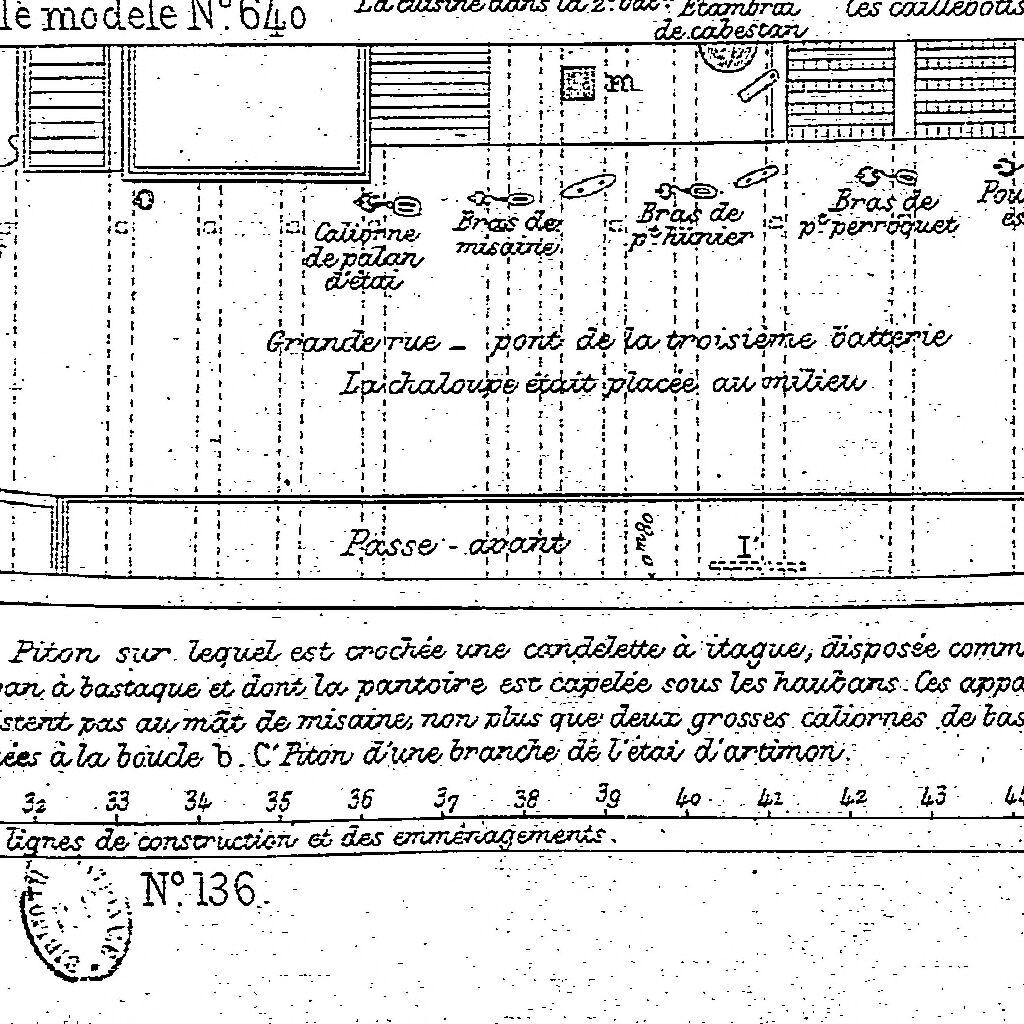 le modèle N.º 640
La cuisine dans la 2.e bat.
Etambrai
de cabestan
les caillebotis
m
Caliorne
de palan
d'étai
Bras de
misaine
Bras de
p.t hunier
Bras de
p.t perroquet
Grande rue _ pont de la troisième batterie
La chaloupe était placée au milieu
Passe-avant
0m80
I'
Piton sur lequel est crochée une candelette à itague, disposée comm
an à bastaque et dont la pantoire est capelée sous les haubans. Ces appa
istent pas au mât de misaine, non plus que deux grosses caliornes de bas
ées à la boucle b. C' Piton d'une branche de l'étai d'artimon.
32 33 34 35 36 37 38 39 40 41 42 43
lignes de construction et des emménagements.
N.º 136.